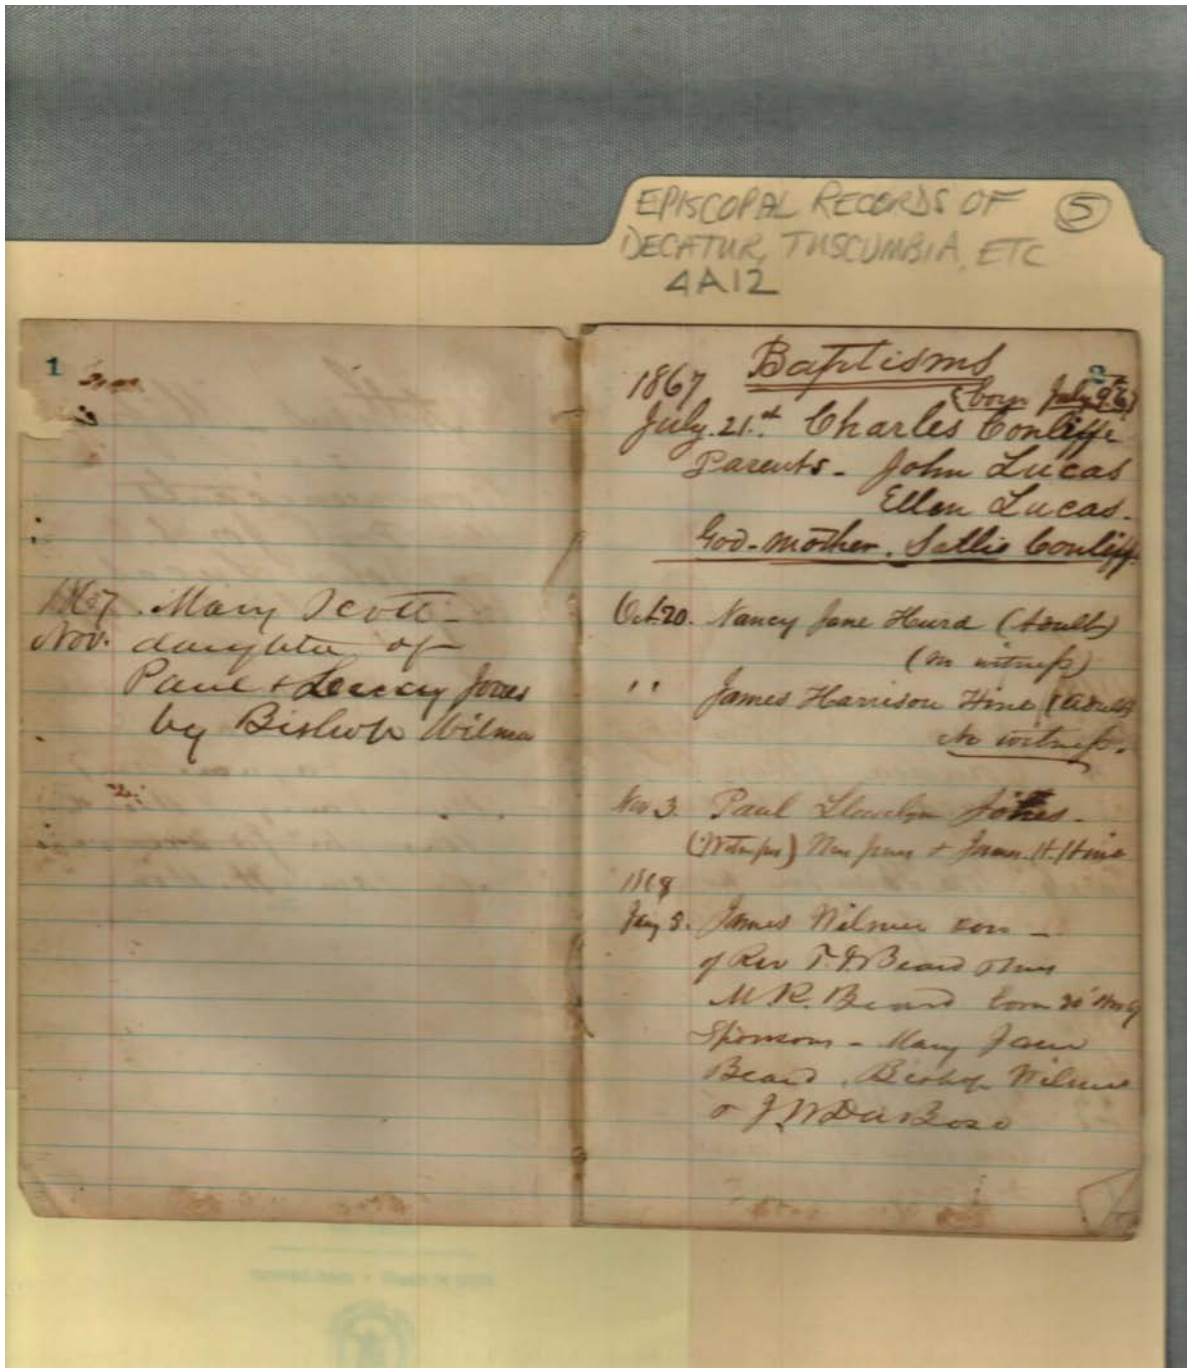 EPISCOPAL RECORDS OF 5
DECATUR, TUSCUMBIA, ETC
4A12
1
1867. Mary Scott -
Nov. daughter of
Paul + Jones
by Bishop Wilmer
2
Baptisms
1867
(born July 9th
July. 21.st Charles Conliffe
Parents - John Lucas
Ellen Lucas -
God-mother. Sallie Conliffe
Oct. 20. Nancy Jane Hurd (Adult)
(no witness)
" James Harrison Hine (adult)
No witness.
Nov 3. Paul Llewelyn Jones -
(Witness) Mrs Jones + James. H. Hine
1868
Jany 3. James Wilmer son -
of Rev T J Beard + Mrs
M R. Beard born 20
Sponsors - Mary Jane
Beard, Bishop Wilmer
+ J W DuBose